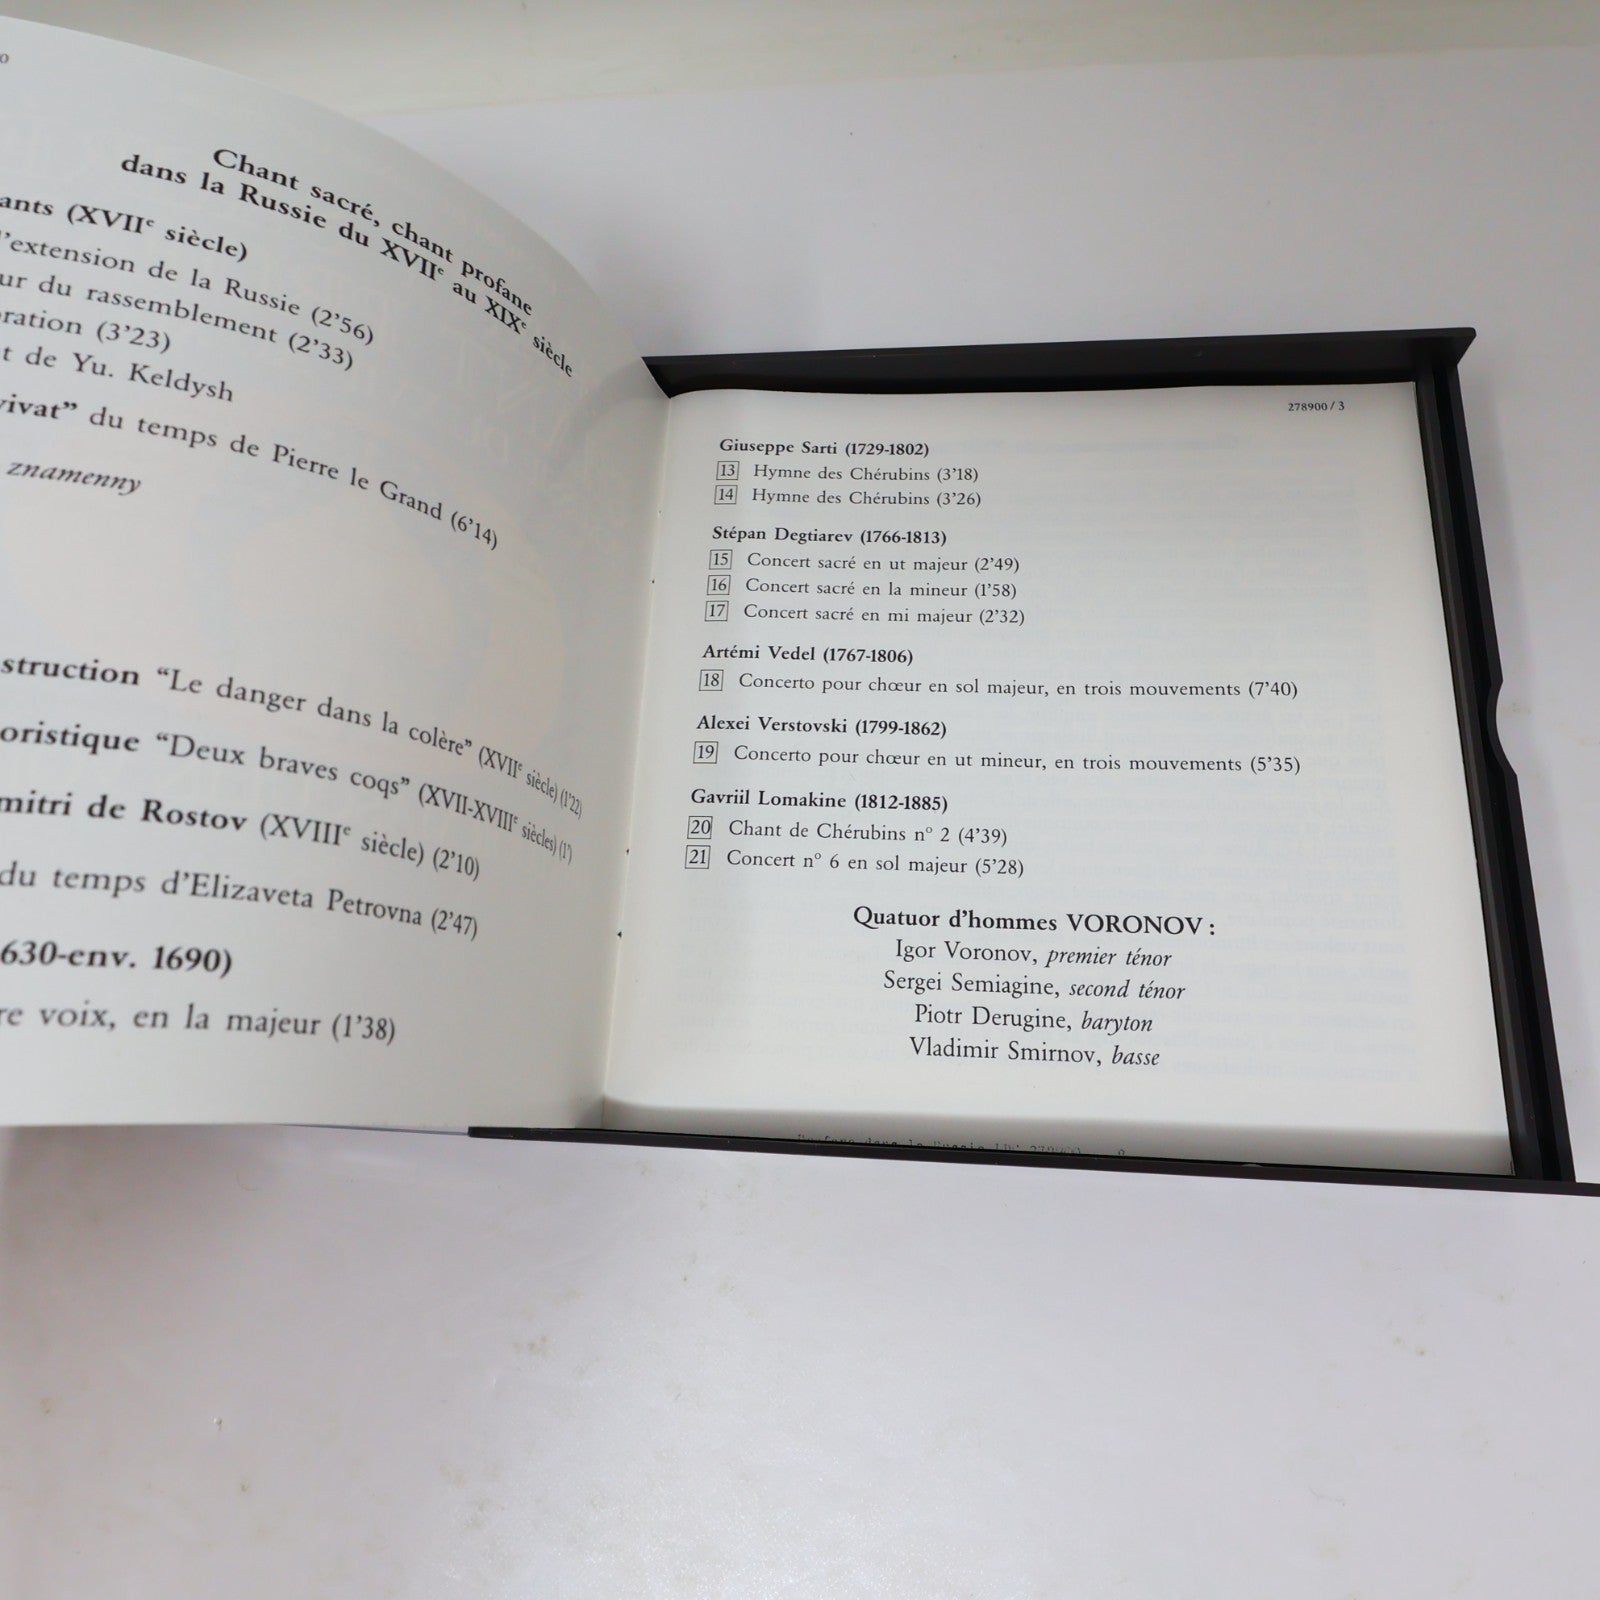 Chant sacré, chant profane
dans la Russie du XVIIe au XIXe siècle
ants (XVIIe siècle)
l'extension de la Russie (2'56)
ur du rassemblement (2'33)
ration (3'23)
t de Yu. Keldysh
vivat” du temps de Pierre le Grand (6'14)
znamenny
struction “Le danger dans la colère” (XVIIe siècle) (1'22)
oristique “Deux braves coqs” (XVII-XVIIIe siècles) (1')
mitri de Rostov (XVIIIe siècle) (2'10)
du temps d'Elizaveta Petrovna (2'47)
630-env. 1690)
re voix, en la majeur (1'38)
278900/3
Giuseppe Sarti (1729-1802)
13 Hymne des Chérubins (3'18)
14 Hymne des Chérubins (3'26)
Stépan Degtiarev (1766-1813)
15 Concert sacré en ut majeur (2'49)
16 Concert sacré en la mineur (1'58)
17 Concert sacré en mi majeur (2'32)
Artémi Vedel (1767-1806)
18 Concerto pour chœur en sol majeur, en trois mouvements (7'40)
Alexei Verstovski (1799-1862)
19 Concerto pour chœur en ut mineur, en trois mouvements (5'35)
Gavriil Lomakine (1812-1885)
20 Chant de Chérubins n° 2 (4'39)
21 Concert n° 6 en sol majeur (5'28)
Quatuor d'hommes VORONOV :
Igor Voronov, premier ténor
Sergei Semiagine, second ténor
Piotr Derugine, baryton
Vladimir Smirnov, basse